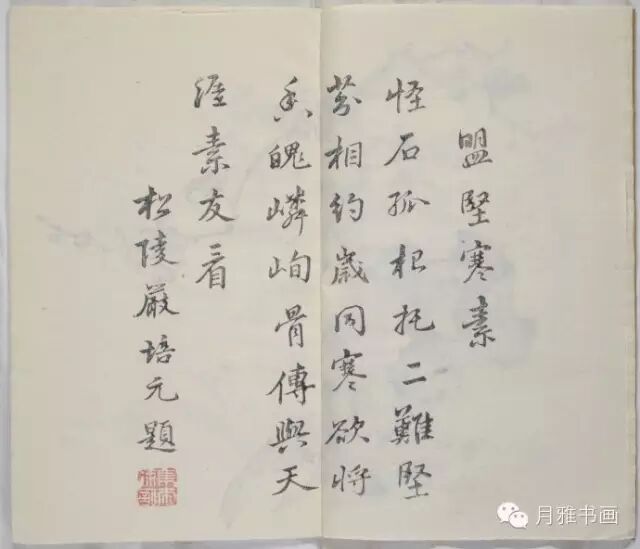 盟堅寒素
怪石孤根托二難堅
芬相約歲同寒欲將
香魄嶙峋骨傳與天
涯素友看
松陵嚴培元題
月雅书画